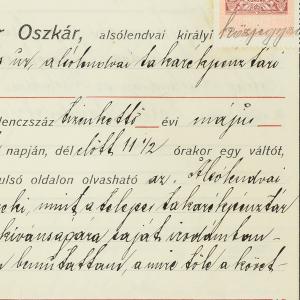 r Oszkár, alsólendvai királyi közjegyző
s úr, alsólendvai takarékpénztári
lenczszáz tizenkettő évi május
napján, dél előtt 11 1/2 órakor egy váltót,
ulsó oldalon olvasható az „Alsólendvai
mint a telepes takarékpénztár
kívánságára saját irodámban
bemutattam, a mire tőle a követ-